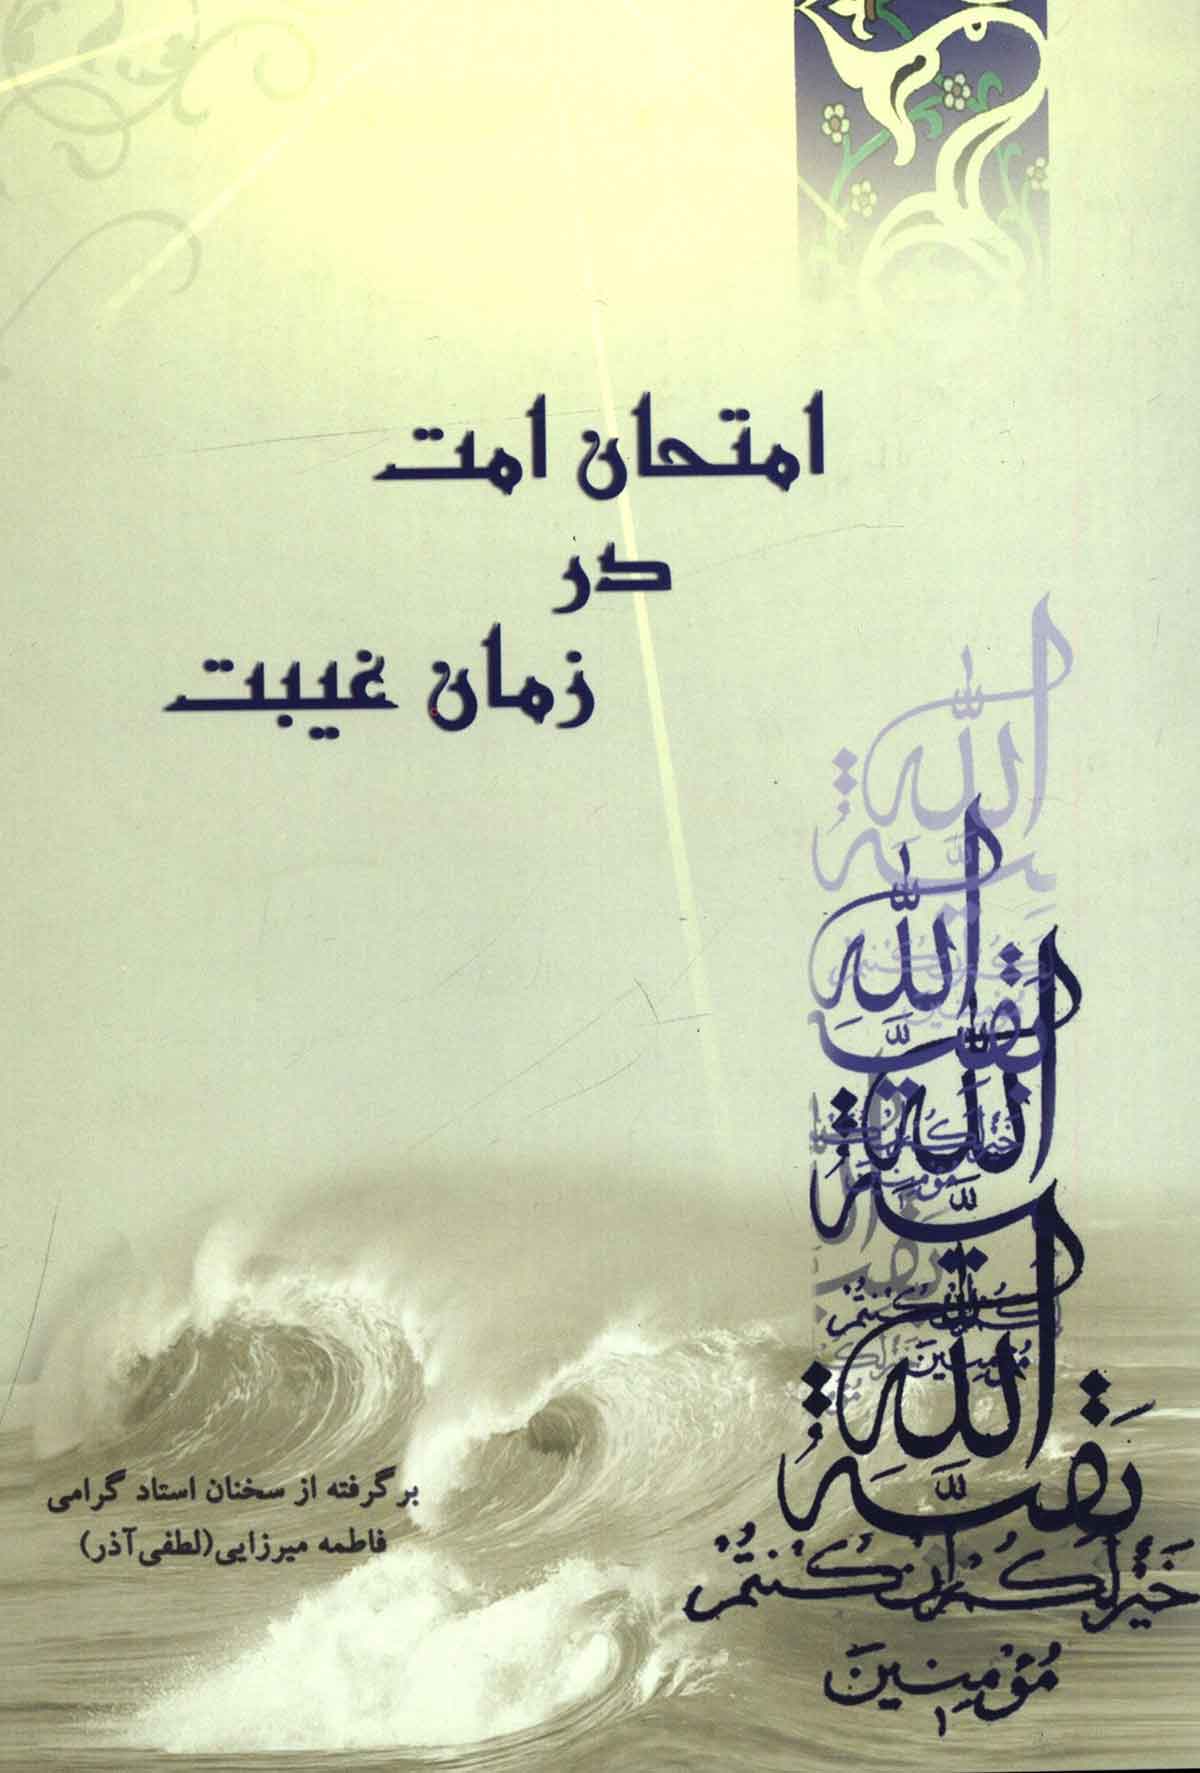 امتحان امت
در
زمان غیبت
بقیة الله
خیر لکم ان کنتم
مؤمنین
برگرفته از سخنان استاد گرامی
فاطمه میرزایی(لطفی آذر)